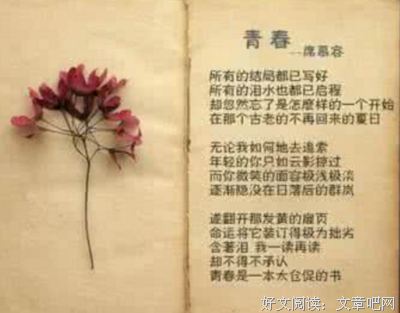 青春
---席慕容
所有的结局都已写好
所有的泪水也都已启程
却忽然忘了是怎麽样的一个开始
在那个古老的不再回来的夏日
无论我如何地去追索
年轻的你只如云影掠过
而你微笑的面容极浅极淡
逐渐隐没在日落后的群岚
遂翻开那发黄的扉页
命运将它装订得极为拙劣
含著泪 我一读再读
却不得不承认
青春是一本太仓促的书
好文阅读：文章吧网